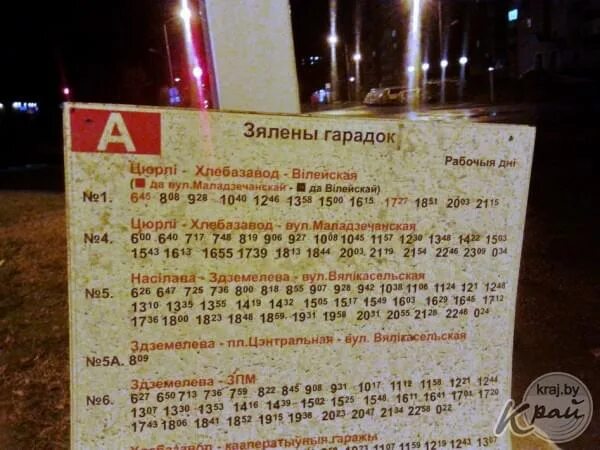 А
Зялены гарадок
Рабочыя дні
Цюрлі - Хлебазавод - Вілейская
(■ да вул.Маладзечанскай - ■ да Вілейскай)
№1. 6⁴⁵ 8⁰⁸ 9²⁸ 10⁴⁰ 12⁴⁶ 13⁵⁸ 15⁰⁰ 16¹⁵ 17²⁷ 18⁵¹ 20⁰³ 21¹⁵
Цюрлі - Хлебазавод - вул.Маладзечанская
№4. 6⁰⁰ 6⁴⁰ 7¹⁷ 7⁴⁸ 8¹⁹ 9⁰⁶ 9²⁷ 10⁰⁸ 10⁴⁵ 11⁵⁷ 12³⁰ 13⁴⁸ 14²² 15⁰³
15⁴³ 16¹³ 16⁵⁵ 17³⁹ 18¹³ 18⁴⁴ 20⁰³ 21¹⁹ 21⁵⁴ 22⁴⁶ 23⁰⁹ 0³⁴
Насілава - Здземелева - вул.Вялікасельская
№5. 6²⁶ 6⁴⁷ 7²⁵ 7³⁶ 8⁰⁰ 8¹⁸ 8⁵⁵ 9⁰⁷ 9²⁸ 9⁴² 10³⁸ 11⁰⁶ 11²⁴ 12¹ 12⁴⁸
13¹⁰ 13³⁵ 13⁵⁵ 14¹⁹ 14³² 15⁰⁵ 15¹⁷ 15⁴⁹ 16⁰³ 16²⁹ 16⁴⁵ 17¹²
17³⁶ 18⁰⁰ 18²³ 18⁴⁸ 18⁵⁹ 19³¹ 19⁵⁸ 20³¹ 20⁵⁵ 21²⁸ 22⁴⁸ 0²⁴
Здземелева - пл.Цэнтральная - вул. Вялікасельская
№5А. 8⁰⁹
Здземелева - ЗПМ
№6. 6²⁷ 6⁵⁰ 7¹³ 7³⁶ 7⁵⁹ 8²² 8⁴⁵ 9⁰⁸ 9³¹ 10¹⁷ 11¹² 11⁵⁸ 12²¹ 12⁴⁴
13⁰⁷ 13³⁰ 13⁵³ 14¹⁶ 14³⁹ 15⁰² 15²⁵ 15⁴⁸ 16¹¹ 16⁴¹ 17⁰³ 17²⁰
17⁴³ 18⁰⁶ 18⁴¹ 18⁵² 19¹⁵ 19³⁸ 20²³ 20⁴⁷ 21³⁴ 22⁵⁸ 0²²
Хлебазавод - кааператыўныя гаражы
kraj.by
Край